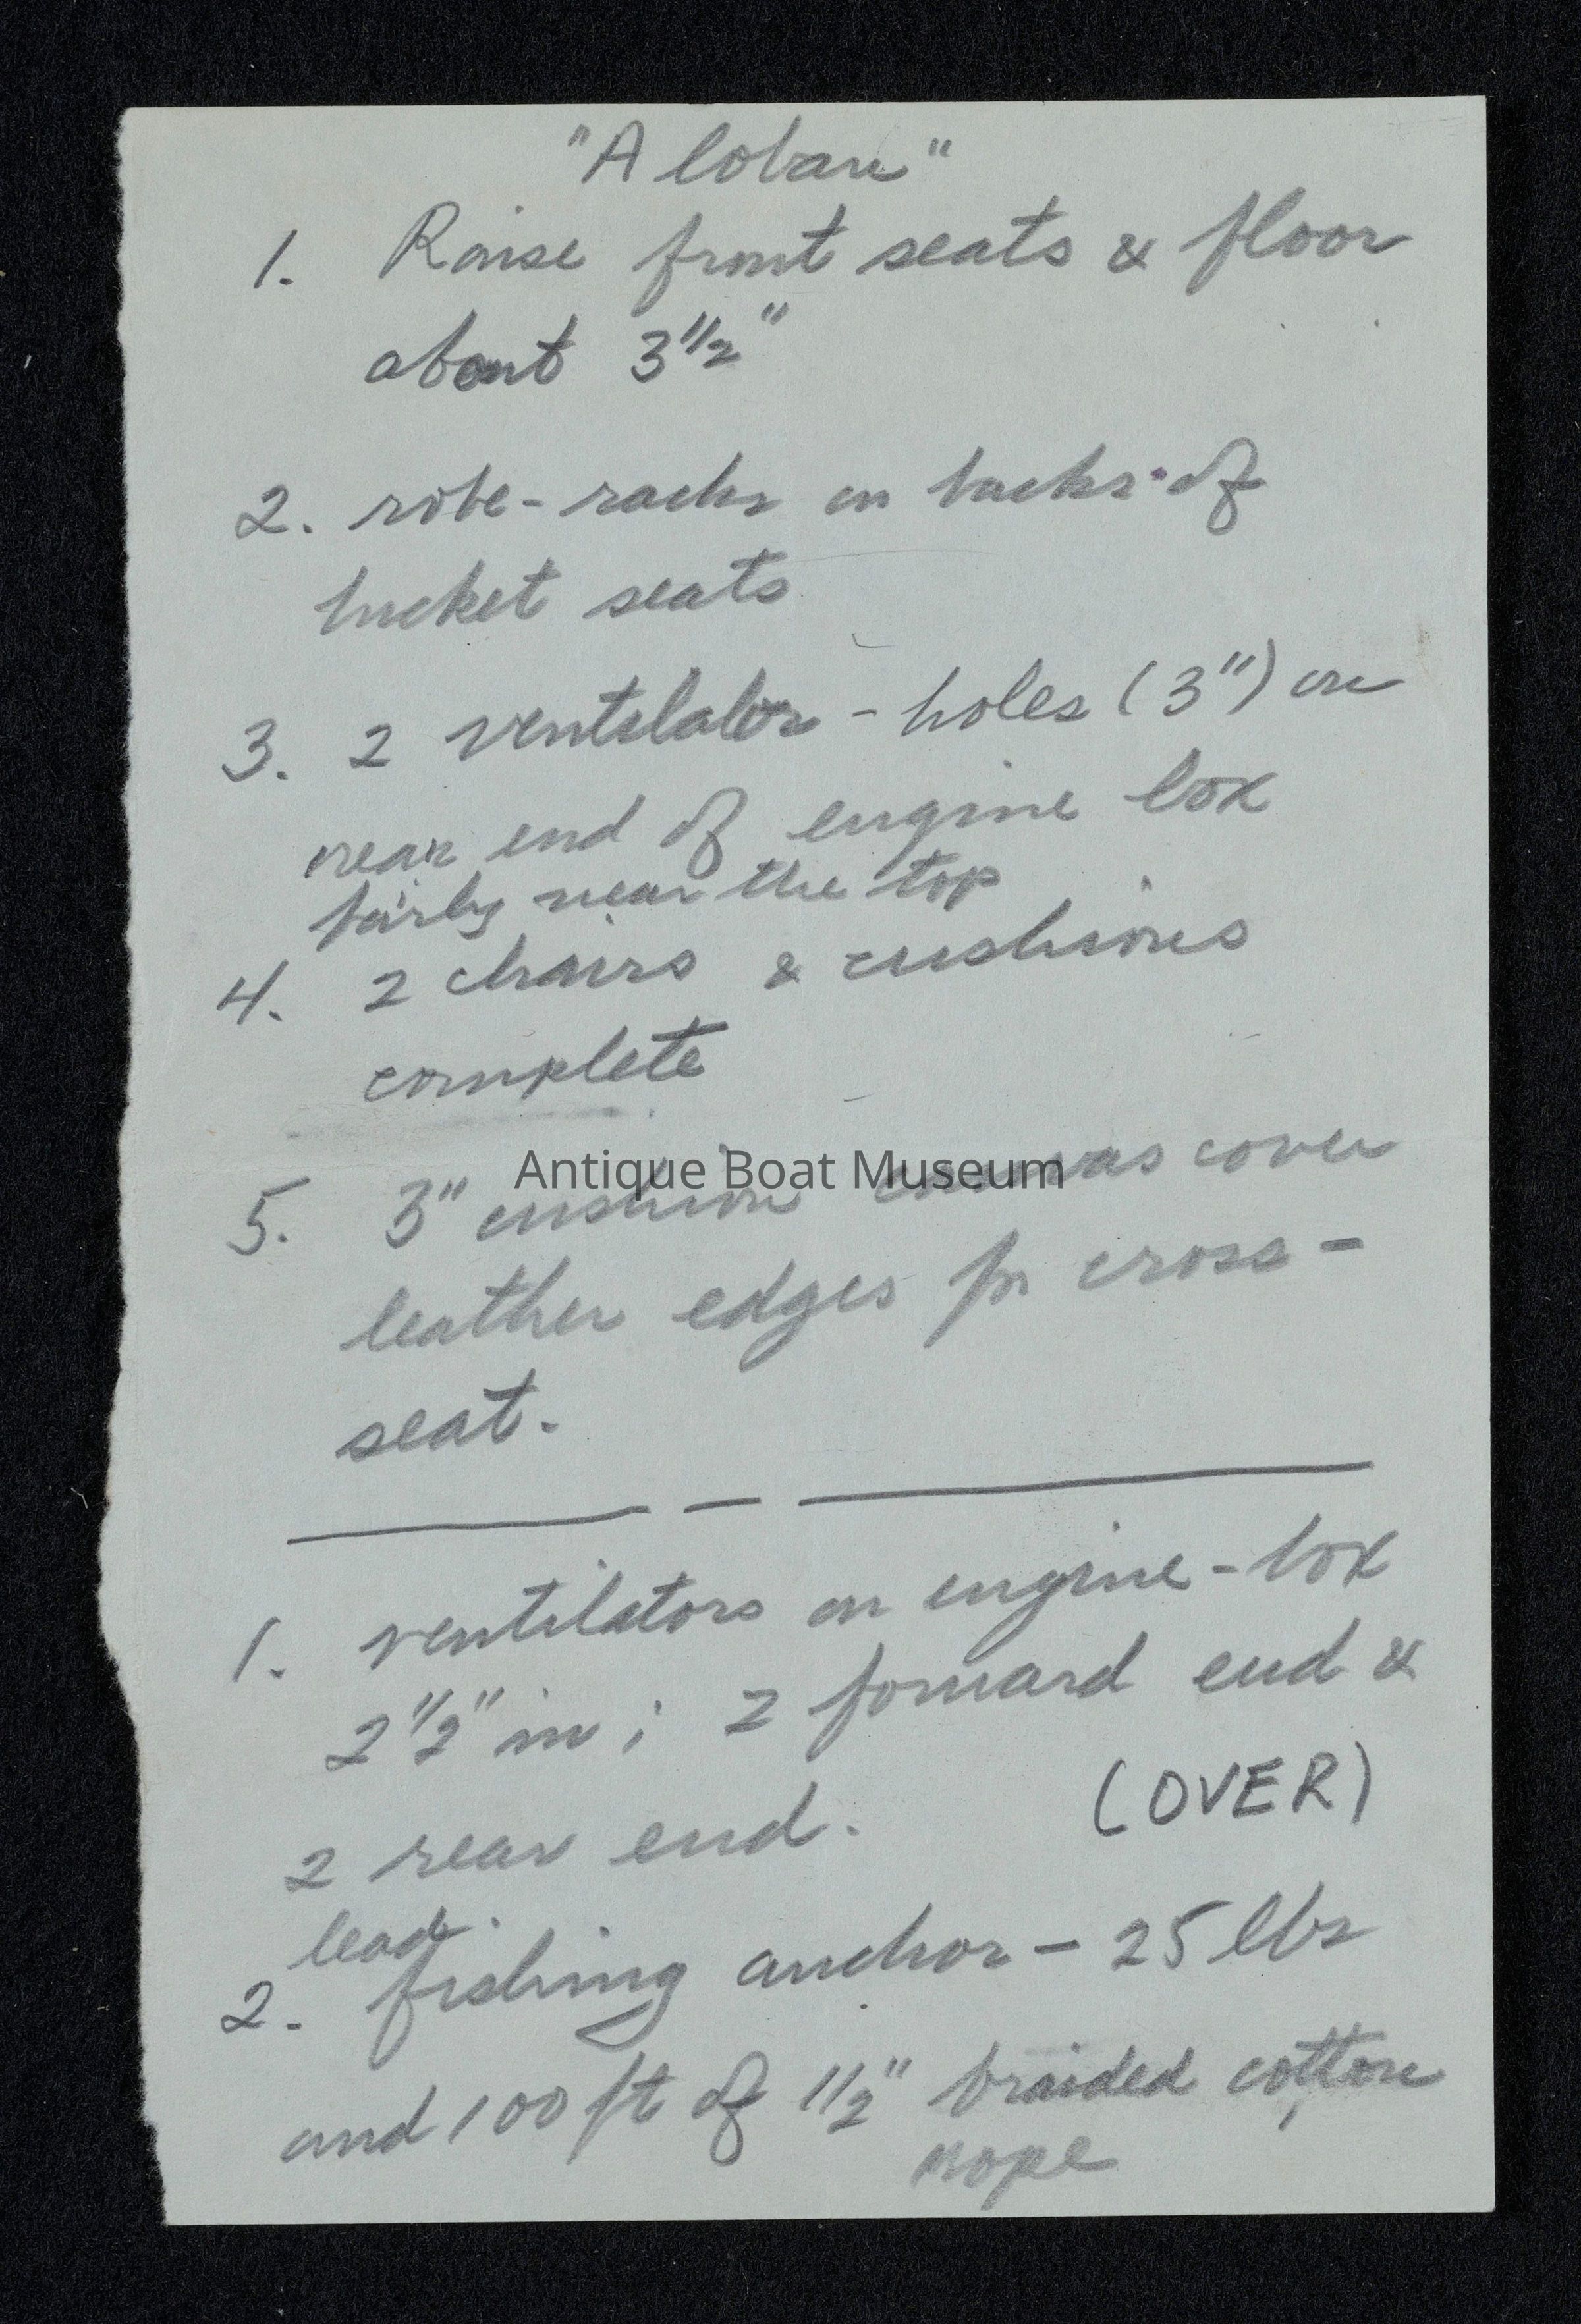 "Aloban"
1. Raise front seats & floor
about 3 1/2"
2. robe-racks on backs of
bucket seats
3. 2 ventilator - holes (3") on
rear end of engine box
fairly near the top
4. 2 chairs & cushions
complete
Antique Boat Museum
5. 3" cushion canvas cover
leather edges for cross -
seat.
1. ventilators on engine - box
2 1/2" in ; 2 forward end &
2 rear end. (OVER)
lead
2. fishing anchor - 25 lbs
and 100 ft of 1/2" braided cotton
rope